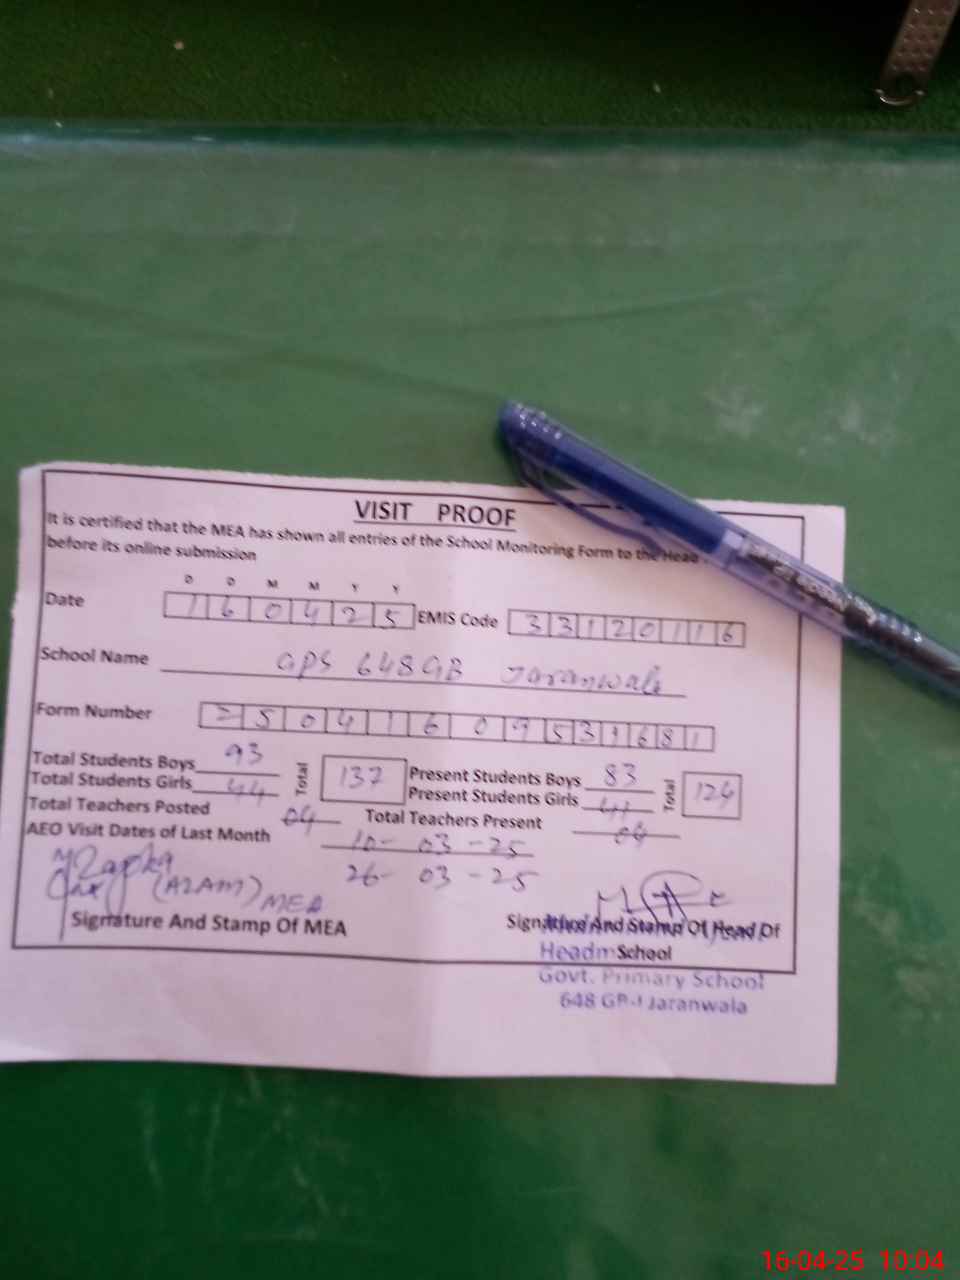 VISIT PROOF
It is certified that the MEA has shown all entries of the School Monitoring Form to the Head
before its online submission
D D M M Y Y
Date 160425 EMIS Code 33120116
School Name GPS 648GB Jaranwala
Form Number 25041609531681
Total Students Boys 93 Total 137 Present Students Boys 83 Total 124
Total Students Girls 44 Present Students Girls 41
Total Teachers Posted 04 Total Teachers Present 04
AEO Visit Dates of Last Month 10-03-25
26-03-25
(AZAM) MEA
Signature And Stamp Of MEA Signature And Stamp Of Head Of
School
Govt. Primary School
Jaranwala
16-04-25 10:04